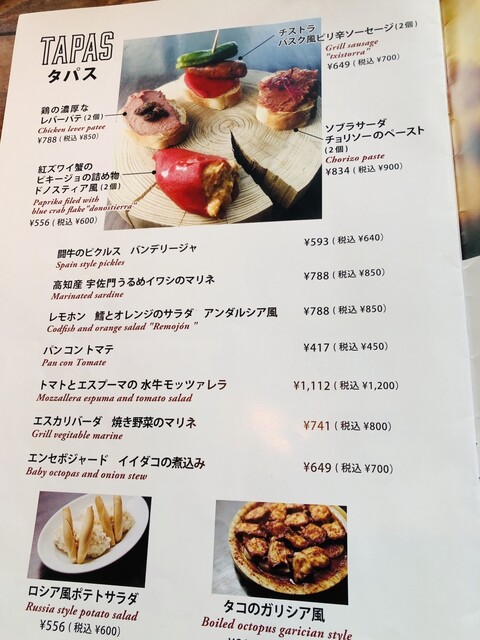 TAPAS
タパス
チストラ
バスク風ピリ辛ソーセージ(2個)
Grill sausage
"txistorra"
¥649 (税込 ¥700)
鶏の濃厚な
レバーパテ(2個)
Chicken lever patee
¥788 (税込 ¥850)
ソブラサーダ
チョリソーのペースト
(2個)
Chorizo paste
¥834 (税込 ¥900)
紅ズワイ蟹の
ピキージョの詰め物
ドノスティア風(2個)
Paprika filed with
blue crab flake"donostierra"
¥556 (税込 ¥600)
闘牛のピクルス バンデリージャ ¥593 (税込 ¥640)
Spain style pickles
高知産 宇佐門うるめイワシのマリネ ¥788 (税込 ¥850)
Marinated sardine
レモホン 鱈とオレンジのサラダ アンダルシア風 ¥788 (税込 ¥850)
Codfish and orange salad "Remojón "
パン コン トマテ ¥417 (税込 ¥450)
Pan con Tomate
トマトとエスプーマの 水牛モッツァレラ ¥1,112 (税込 ¥1,200)
Mozzallera espuma and tomato salad
エスカリバーダ 焼き野菜のマリネ ¥741 (税込 ¥800)
Grill vegitable marine
エンセボジャード イイダコの煮込み ¥649 (税込 ¥700)
Baby octopas and onion stew
ロシア風ポテトサラダ
Russia style potato salad
¥556 (税込 ¥600)
タコのガリシア風
Boiled octopus garician style